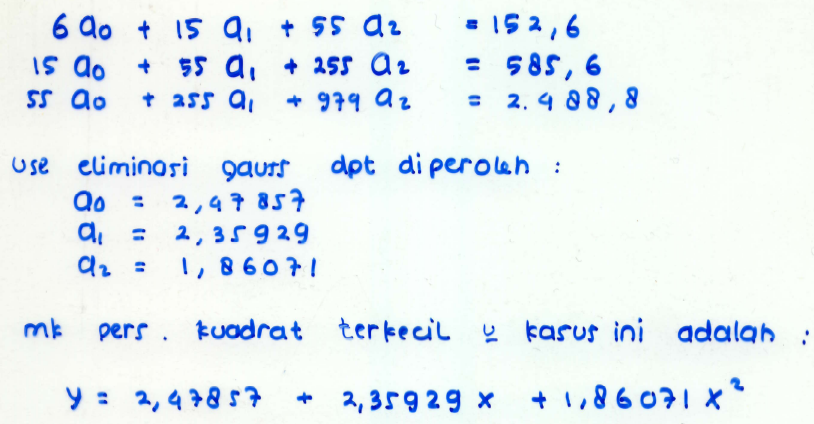 6 a₀ + 15 a₁ + 55 a₂ = 152,6
15 a₀ + 55 a₁ + 255 a₂ = 585,6
55 a₀ + 255 a₁ + 979 a₂ = 2.488,8
use eliminasi gauss dpt diperoleh :
a₀ = 2,47857
a₁ = 2,35929
a₂ = 1,86071
mk pers. kuadrat terkecil u kasus ini adalah :
y = 2,47857 + 2,35929 x + 1,86071 x²